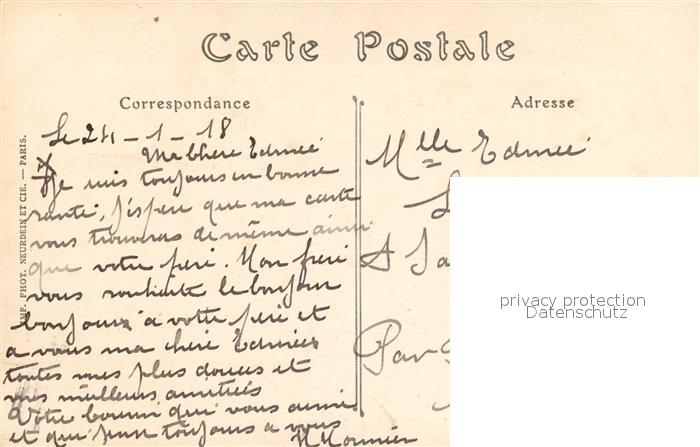 Carte Postale
Correspondance
Adresse
IMP. PHOT. NEURDEIN ET CIE. — PARIS.
Le 24 - 1 - 18
Ma chere Edmée
Je suis toujours en bonne
santé, j'espere que ma carte
vous trouveras de même ainsi
que votre peré. Mon freré
vous souhaite le bonjour
bonjours a votre peré et
a vous ma cheré Edmée
toutes mes plus douces et
mes meilleurs amitiés
Votre qui vous aime
et qui pense toujours a vous
Mlle Edmée
A
Par
privacy protection
Datenschutz